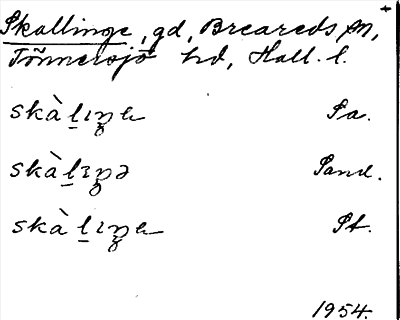 Skallinge, gd, Breareds sn,
Tönnersjö hd, Hall. l.
skàlıŋa Sa.
skàlıŋə Sand.
skàlıŋa St.
1954.